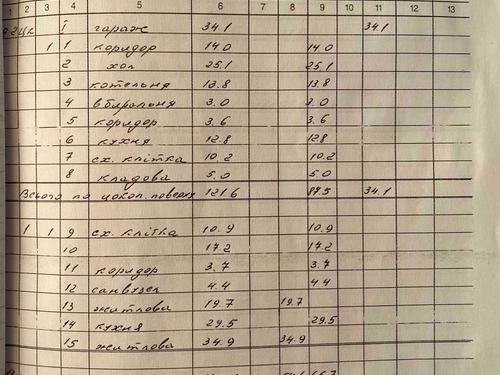 1 2 3 4 5 6 7 8 9 10 11 12 13
І гараж 34.1 34.1
1 1 коридор 14.0 14.0
2 хол 25.1 25.1
3 котельня 13.8 13.8
4 вбиральня 3.0 3.0
5 коридор 3.6 3.6
6 кухня 12.8 12.8
7 сх. клітка 10.2 10.2
8 кладова 5.0 5.0
Всього по цокол. поверху 121.6 87.5 34.1
1 1 9 сх. клітка 10.9 10.9
10 17.2 17.2
11 коридор 3.7 3.7
12 санвузел 4.4 4.4
13 житлова 19.7 19.7
14 кухня 29.5 29.5
15 житлова 34.9 34.9